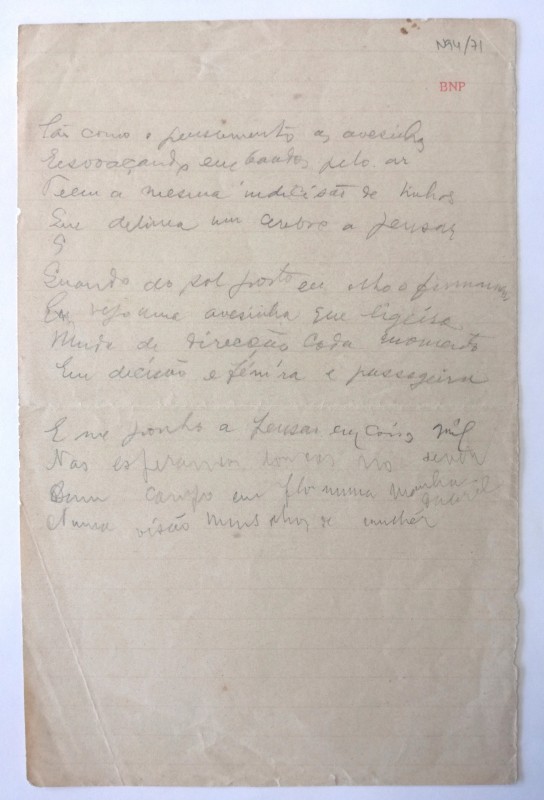 N94/71
BNP
São como o pensamento as avesinhas
Esvoaçando em bandos pelo ar
Teem a mesma indecisão de linhas
Que delinea um cerebro a pensar
Quando do sol posto eu olho o firmamento
Eu vejo uma avesinha que ligeira
Muda de direcção cada momento
Em decisão e passageira
E me ponho a pensar em coisas mil
Nas
campo em flor numa manhã
d'Abril
Numa visão de mulher